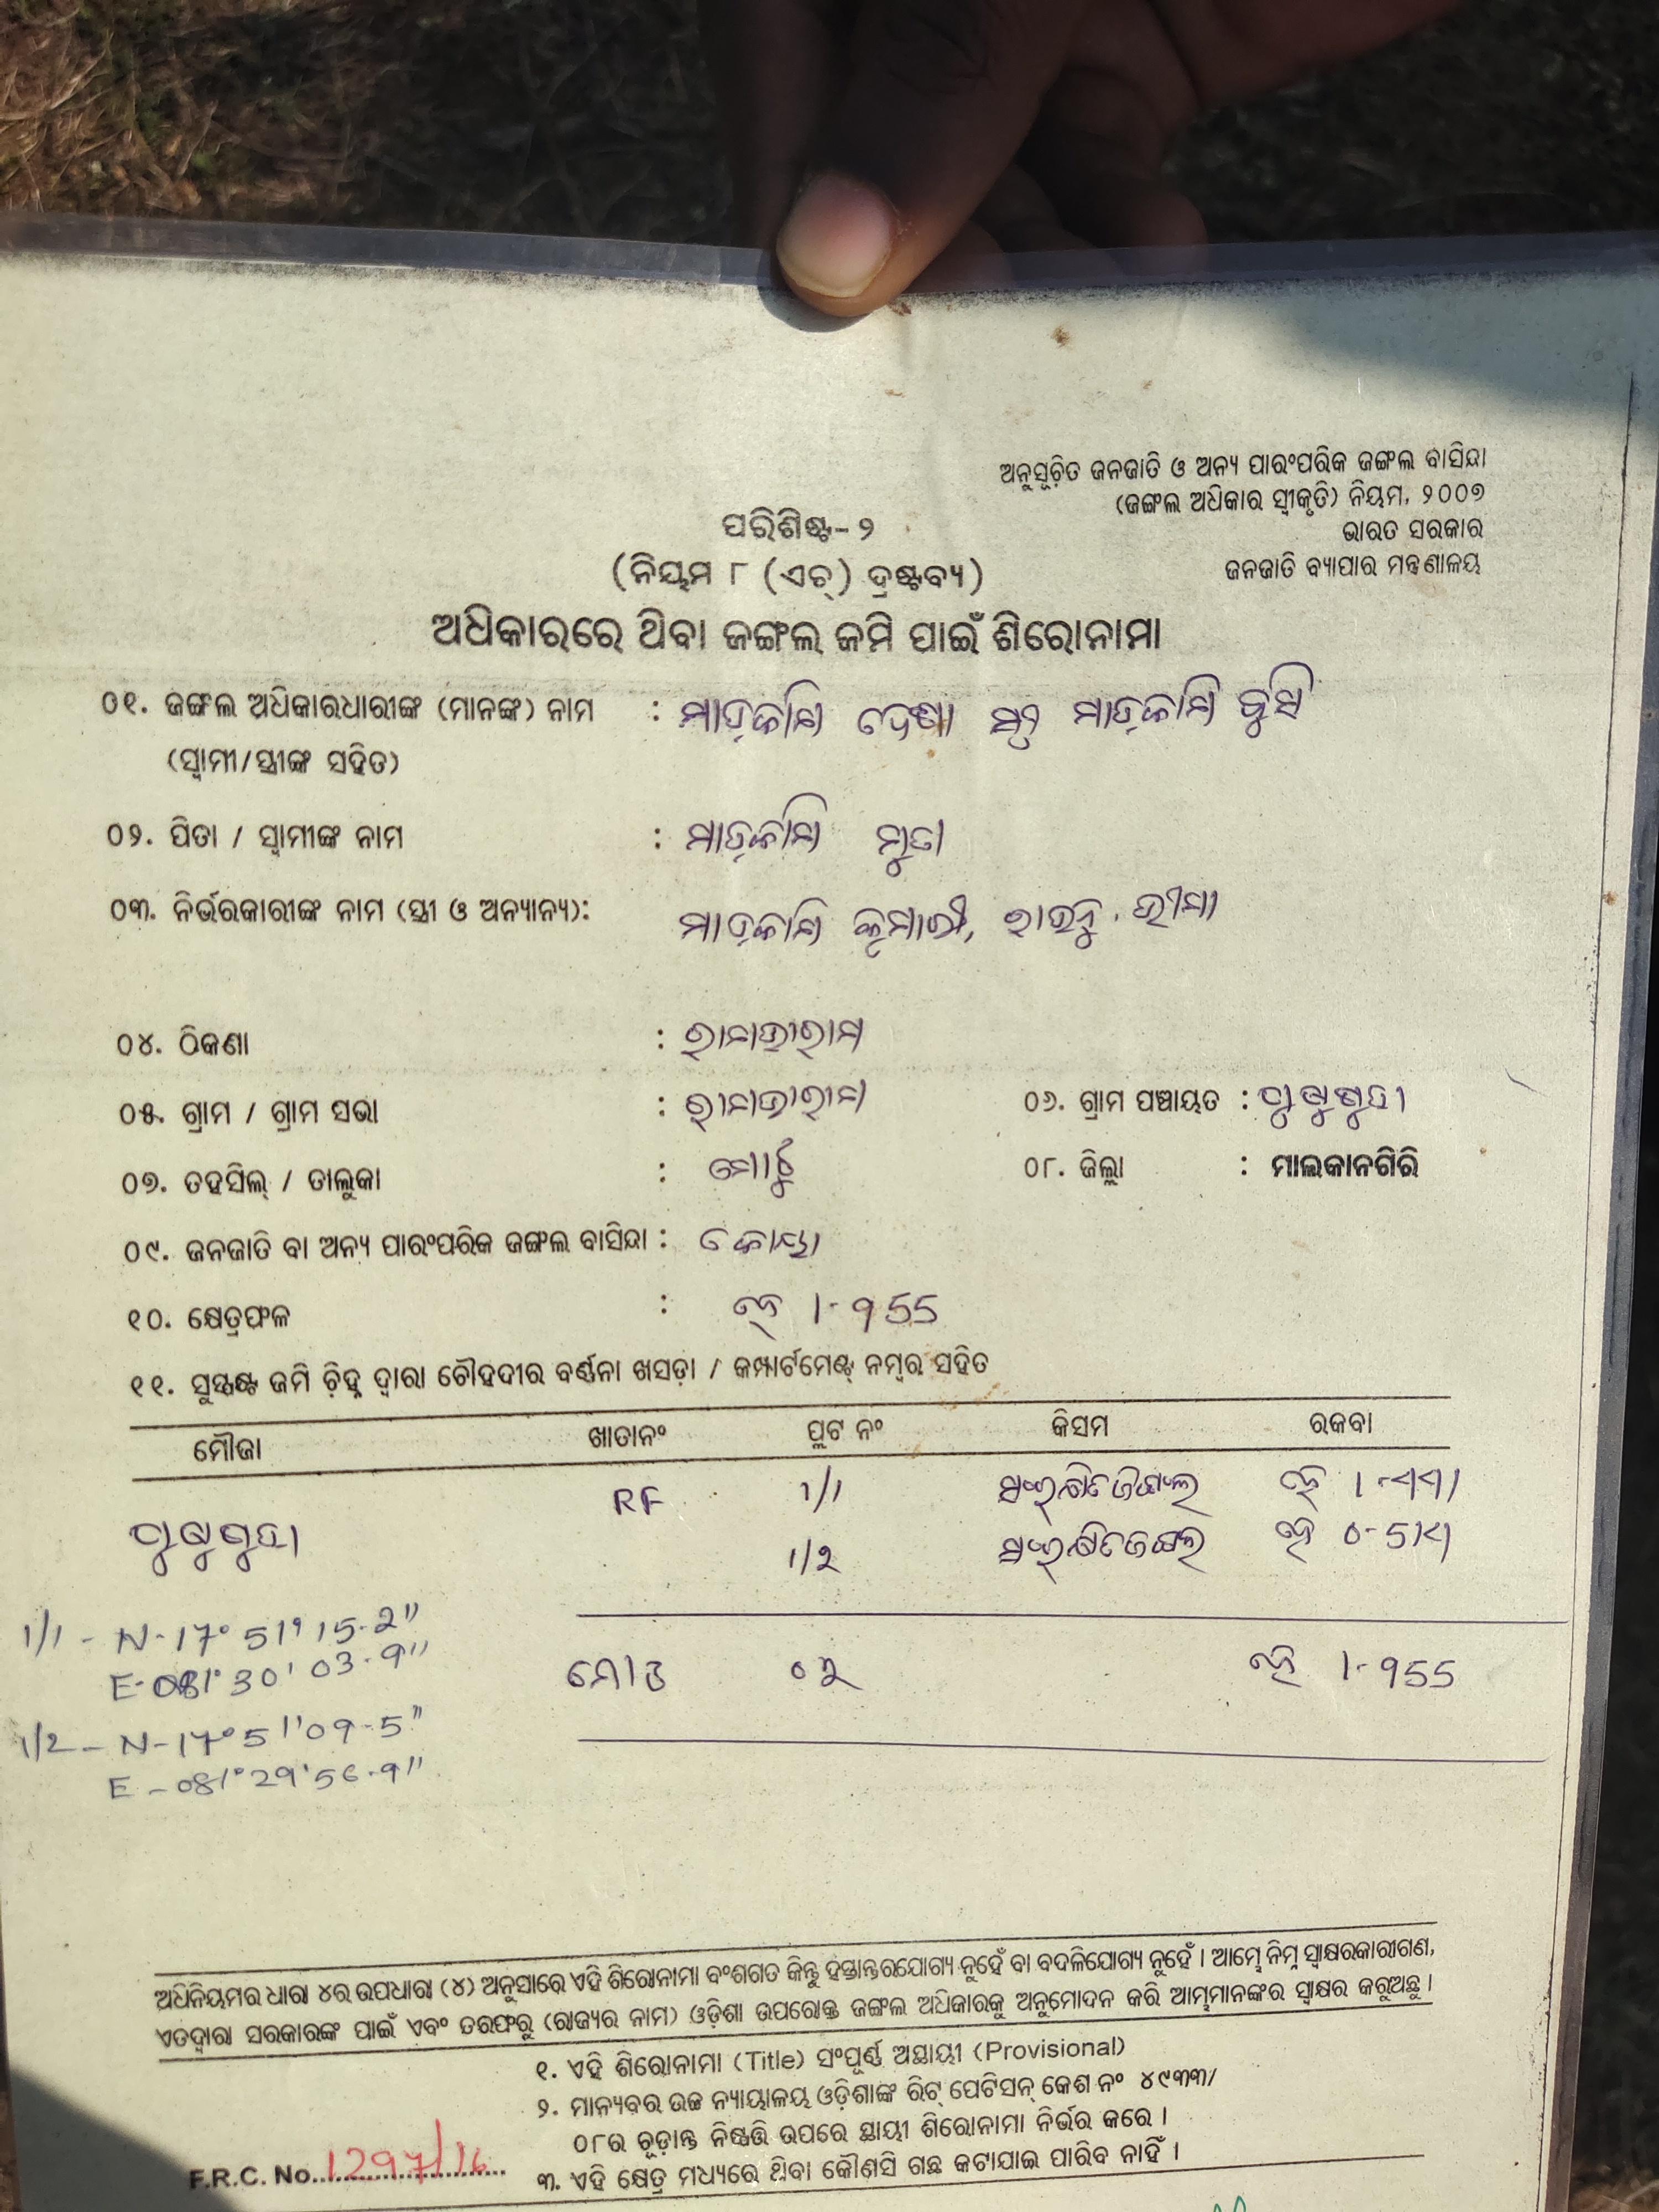 ଅନୁସୂଚିତ ଜନଜାତି ଓ ଅନ୍ୟ ପାରଂପରିକ ଜଙ୍ଗଲ ବାସିନ୍ଦା
(ଜଙ୍ଗଲ ଅଧିକାର ସ୍ୱୀକୃତି) ନିୟମ, ୨୦୦୭
ଭାରତ ସରକାର
ଜନଜାତି ବ୍ୟାପାର ମନ୍ତ୍ରଣାଳୟ
ପରିଶିଷ୍ଟ-୨
(ନିୟମ ୮ (ଏଚ୍) ଦ୍ରଷ୍ଟବ୍ୟ)
ଅଧିକାରରେ ଥିବା ଜଙ୍ଗଲ ଜମି ପାଇଁ ଶିରୋନାମା
୦୧. ଜଙ୍ଗଲ ଅଧିକାରଧାରୀଙ୍କ (ମାନଙ୍କ) ନାମ : ମାଡ଼କାମି ଦେଶା ସ୍ତ୍ରୀ ମାଡ଼କାମି ବୁସି
(ସ୍ୱାମୀ/ସ୍ତ୍ରୀଙ୍କ ସହିତ)
୦୨. ପିତା / ସ୍ୱାମୀଙ୍କ ନାମ : ମାଡ଼କାମି ମୁତା
୦୩. ନିର୍ଭରକାରୀଙ୍କ ନାମ (ସ୍ତ୍ରୀ ଓ ଅନ୍ୟାନ୍ୟ): ମାଡ଼କାମି କୁମାରୀ, ଭୀମା
୦୪. ଠିକଣା :
୦୫. ଗ୍ରାମ / ଗ୍ରାମ ସଭା : ୦୬. ଗ୍ରାମ ପଞ୍ଚାୟତ :
୦୭. ତହସିଲ୍ / ତାଲୁକା : ମୋଟୁ ୦୮. ଜିଲ୍ଲା : ମାଲକାନଗିରି
୦୯. ଜନଜାତି ବା ଅନ୍ୟ ପାରଂପରିକ ଜଙ୍ଗଲ ବାସିନ୍ଦା : କୋୟା
୧୦. କ୍ଷେତ୍ରଫଳ : ହେ 1-955
୧୧. ସୁସ୍ପଷ୍ଟ ଜମି ଚିହ୍ନ ଦ୍ୱାରା ଚୌହଦୀର ବର୍ଣ୍ଣନା ଖସଡ଼ା / କମ୍ପାର୍ଟମେଣ୍ଟ୍ ନମ୍ବର ସହିତ
ମୌଜା ଖାତାନଂ ପ୍ଲଟ ନଂ କିସମ ରକବା
RF 1/1 ସଂରକ୍ଷିତ ଜଙ୍ଗଲ ହେ
1/2 ସଂରକ୍ଷିତ ଜଙ୍ଗଲ ହେ
1/1 - N-17° 51' 15.2"
E-081° 30' 03.9"
ମୋଟ ୦୨ ହେ 1-955
1/2 - N-17° 51' 09.5"
E - 081° 29' 56.9"
ଅଧିନିୟମର ଧାରା ୪ର ଉପଧାରା (୪) ଅନୁସାରେ ଏହି ଶିରୋନାମା ବଂଶଗତ କିନ୍ତୁ ହସ୍ତାନ୍ତରଯୋଗ୍ୟ ନୁହେଁ ବା ବଦଳିଯୋଗ୍ୟ ନୁହେଁ । ଆମ୍ଭେ ନିମ୍ନ ସ୍ୱାକ୍ଷରକାରୀଗଣ,
ଏତଦ୍ଦ୍ୱାରା ସରକାରଙ୍କ ପାଇଁ ଏବଂ ତରଫରୁ (ରାଜ୍ୟର ନାମ) ଓଡ଼ିଶା ଉପରୋକ୍ତ ଜଙ୍ଗଲ ଅଧିକାରକୁ ଅନୁମୋଦନ କରି ଆମ୍ଭମାନଙ୍କର ସ୍ୱାକ୍ଷର କରୁଅଛୁ ।
୧. ଏହି ଶିରୋନାମା (Title) ସଂପୂର୍ଣ୍ଣ ଅସ୍ଥାୟୀ (Provisional)
୨. ମାନ୍ୟବର ଉଚ୍ଚ ନ୍ୟାୟାଳୟ ଓଡ଼ିଶାଙ୍କ ରିଟ୍ ପେଟିସନ୍ କେଶ ନଂ ୪୯୩୩/
୦୮ର ଚୂଡ଼ାନ୍ତ ନିଷ୍ପତ୍ତି ଉପରେ ସ୍ଥାୟୀ ଶିରୋନାମା ନିର୍ଭର କରେ ।
F.R.C. No. 1297/16
୩. ଏହି କ୍ଷେତ୍ର ମଧ୍ୟରେ ଥିବା କୌଣସି ଗଛ କଟାଯାଇ ପାରିବ ନାହିଁ ।